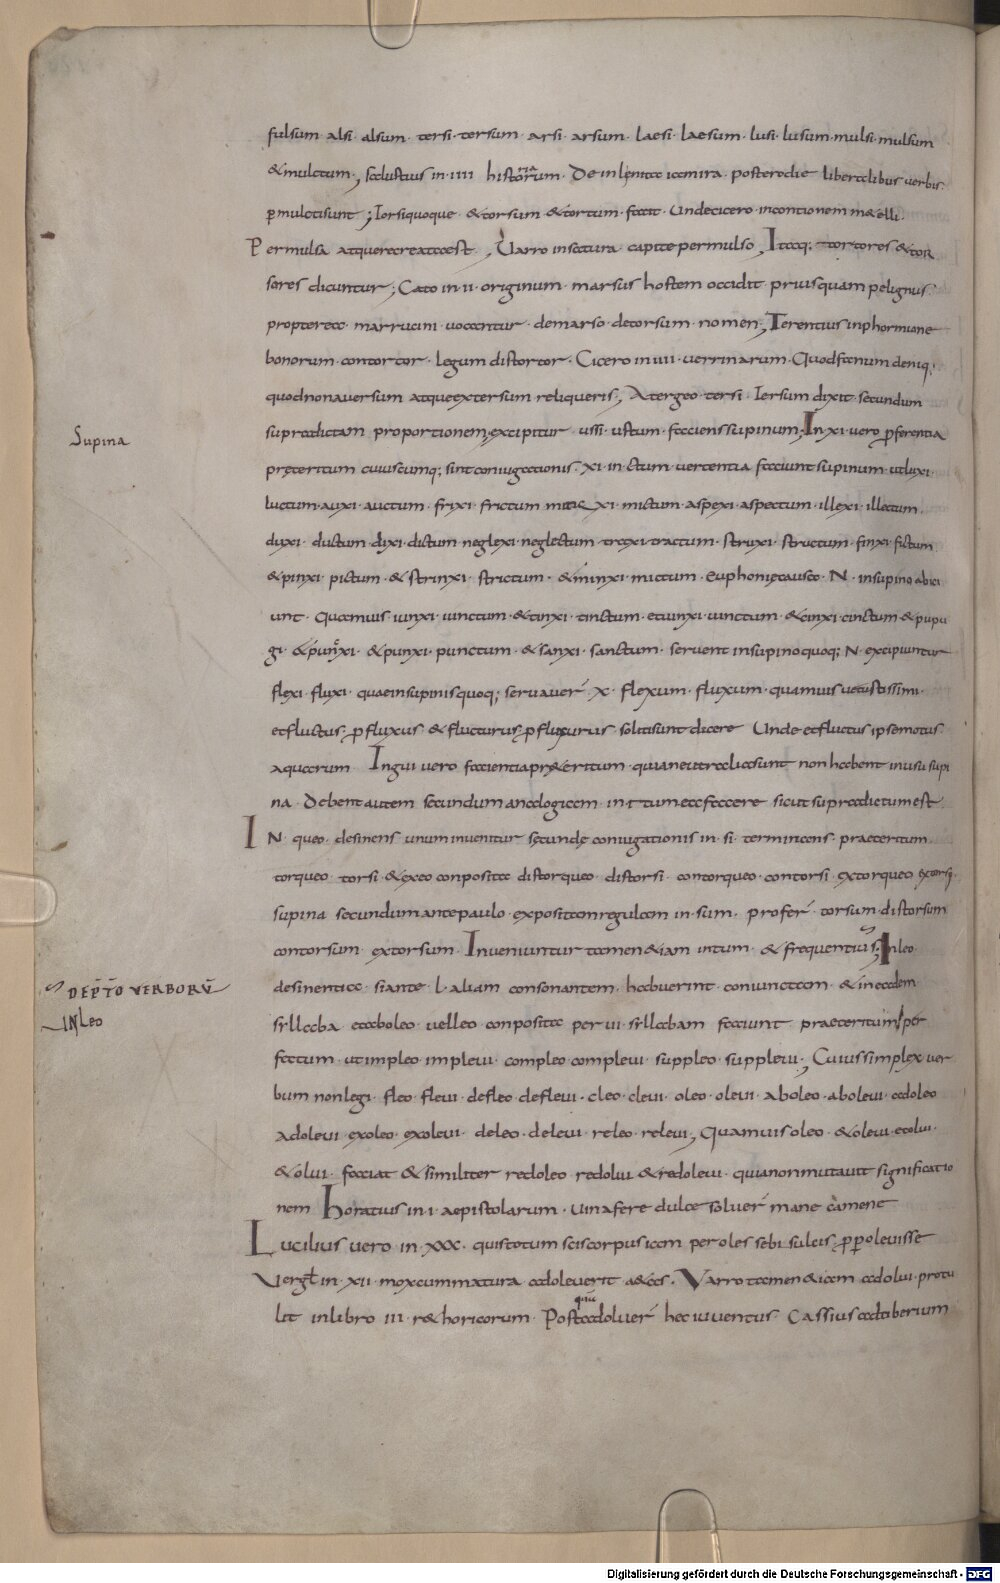 fulsum · alsi · alsum · tersi · tersum · arsi · arsum · laesi · laesum · lusi · lusum · mulsi · mulsum
&mulctum ; salustius in · IIII · historiarum · De inlenita iamira · postero die liberalibus verbis
permulctisunt ; Torsiquoque · &torsum &tortum · facit · Unde cicero incontionem m&elli ·
Permulsa atquerecreataest ; Varro insatura capite permulso ; Itaq; tortores &tor
sores dicuntur ; Cato in · II · originum · marsus hostem occidit priusquam pelignus
propterea · marrucini vocantur · demarso detorsum nomen ; Terentius inphormione
bonorum · contortor · legum distortor · Cicero in IIII · verrinarum · Quodfanum deniq;
quodnonaversum atqueextersum reliqueris ; A tergeo · tersi · Tersum dixit secundum
supradictam proportionem ; excipitur ussi · ustum · facienssupinum ; In xi · vero proferentia
Supina
pręteritum cuiuscumq; sintconiugationis · xi · in ctum vertentia faciunt supinum · utluxi ·
luctum · auxi · auctum · frixi · frictum mixi · mictum · aspexi · aspectum · illexi · illectum ·
duxi · ductum · dixi · dictum · neglexi · neglectum · traxi · tractum · struxi · structum · finxi · fictum
&pinxi · pictum · &strinxi · strictum · &minxi · mictum · euphonięcausa · N · insupino abici
unt · Quamuis iunxi · iunctum · &tinxi · tinctum · etunxi · unctum · &cinxi · cinctum · &pupu
gi · &punxi · &punxi · punctum · &sanxi · sanctum · servent insupinoquoq; N · excipiuntur
flexi · fluxi · quaeinsupinisquoq; servaver · x · flexum · fluxum · quamuis vetustissimi ·
etfluctus · pro fluxus · & flucturus · pro fluxurus · solitisunt dicere Unde etfluctus ipsemotus
aquarum · In gui vero facientiapr&eritum · quianeutraliasunt non habent inusu supi
na · Debent autem secundum analogiam · in · t · tum ea facere sicut supradictum est
IN · queo · desinens unum invenitur sęcundę coniugationis in · si · terminans praeteritum
torqueo · torsi · &exeo conposita distorqueo · distorsi · contorqueo · contorsi · extorqueo extorsi ·
supina secundum antepaulo · expositamregulam in · sum · profer · torsum · distorsum
contorsum · extorsum · Inveniuntur tamen &iam intum · & frequentius ; Inleo
DE PTO VERBORU
IN leo
desinentia · siante · l · aliam consonantem · habuerint coniunctam · & ineadem
syllaba eaaboleo · velleo conposita per vi · syllabam faciunt praeteritum per
fectum · utimpleo implevi · compleo · complevi · suppleo · supplevi ; Cuius simplex ver
bum nonlegi · fleo · flevi · defleo · deflevi · cleo · clevi · oleo · olevi · aboleo · abolevi · adoleo
adolevi · exoleo · exolevi · deleo · delevi · releo · relevi ; Quamuis oleo · &olevi · etolui ·
&olui · faciat & similiter redoleo · redolui &redolevi · quianonmutavit significatio
nem Horatius in · I · aepistolarum · vinafere dulce soluer mane camene
Lucilius vero in XXX · quistotum sciscorpusiam per oles sebi sulcis properolevisse
Vergl in · XII · moxcummatura adoleverit a&as · Varro tamen &iam adolui · protu
lit inlibro III · r&horicorum · Post quam adoluer hec iuventus · Cassius adtiberium
Digitalisierung gefördert durch die Deutsche Forschungsgemeinschaft - DFG